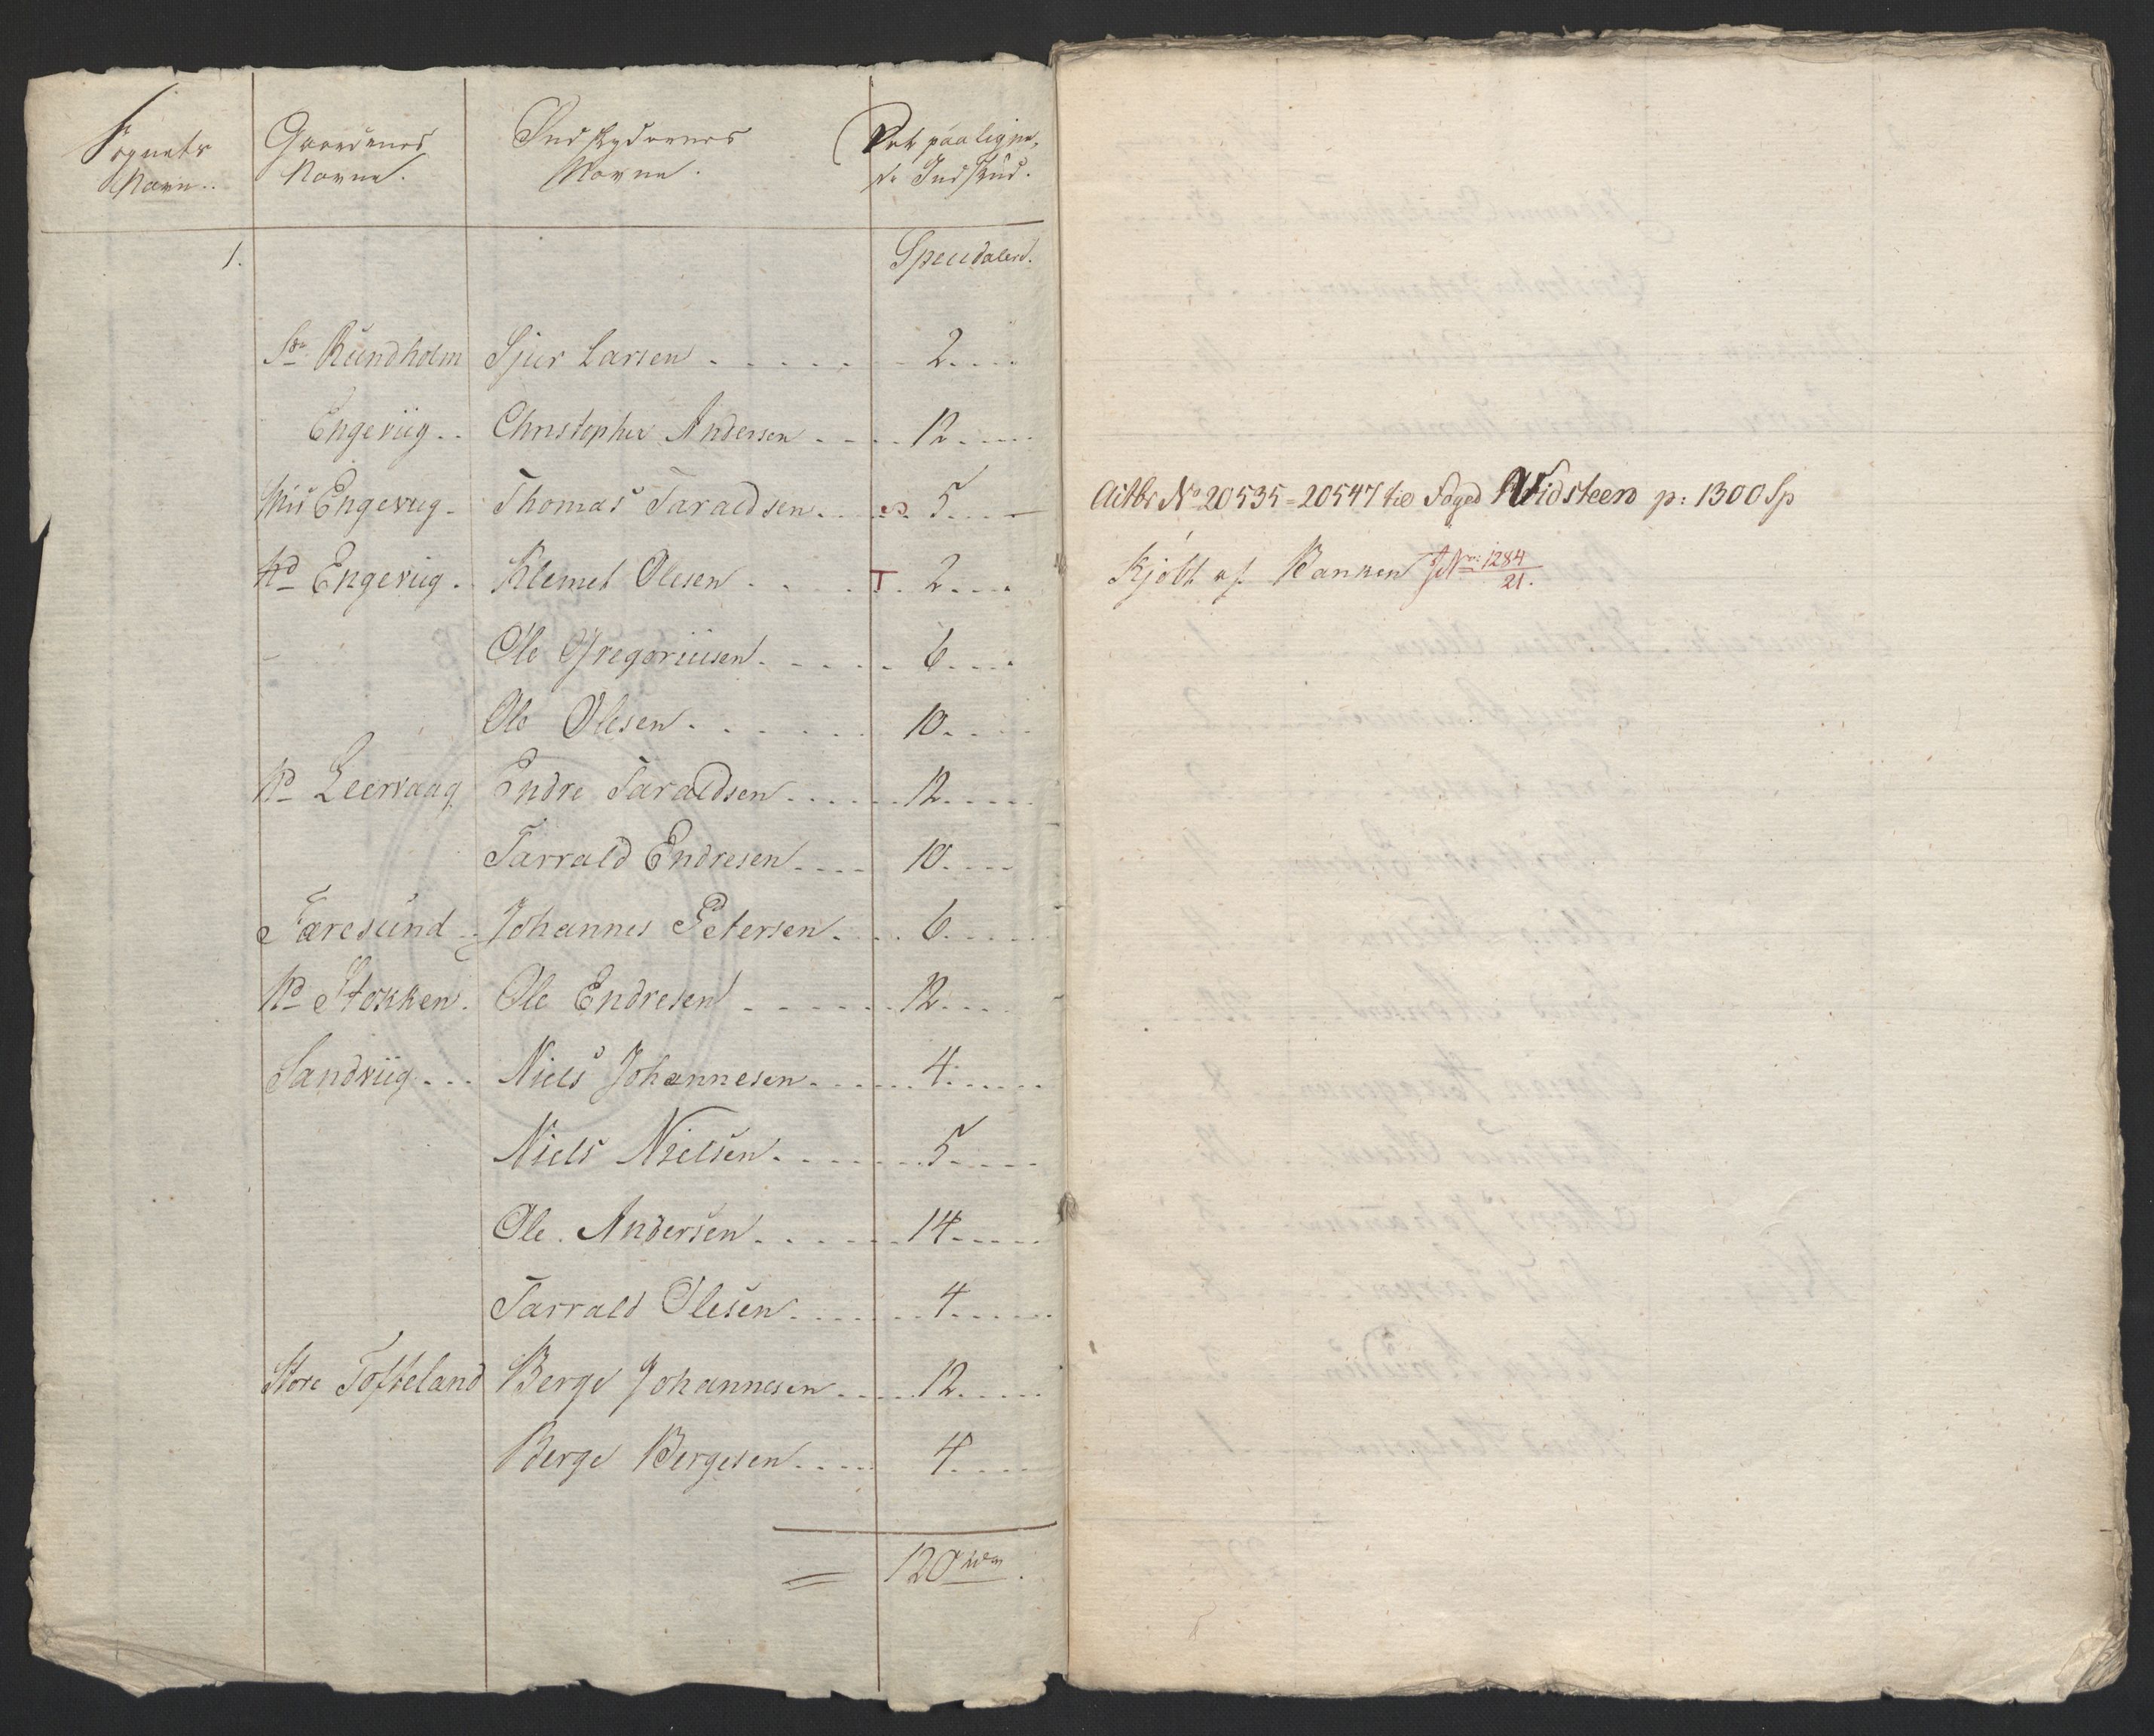 Sognets Navn..
Gaardenes Navne.
Indskydernes Navne.
Det paalign,
de Indskud.
1.
Speciedaler.
Sr Rundholm Sjur Larsen . . . . . 2. . . .
Engeviig . . Christopher Andersen . . . . 12. . . .
Mis Engeviig . Thomas Taraldsen. . . . 5. . . .
Nd Engeviig . Klemet Olesen . . . T . 2. . . .
Ole Gregoriusen. . . . . 6. . . .
Ole Olesen . . . . . 10. . . .
Nd Leervaag Endre Taraldsen. . . . . 12. . . .
Tarrald Endresen. . . . 10. . . .
Færesund . . Johannes Petersen. . . . 6. . . .
Nd Stokken . Ole Endresen . . . . . 12. . . .
Sandviig . . . Niels Johannesen. . . . . 4. . . .
Niels Nielsen. . . . . 5. . . .
Ole Andersen. . . . . 14. . . .
Tarrald Olesen. . . . . 4. . . .
Store Tofteland Berge Johannesen. . . . 12. . . .
Berge Bergesen. . . . 4. . . .
= 120
Actbr No 20535 = 20547 til Foged Widsteen p: 1300 Sp
Kjöbt af Banken Nr: 1284/21.